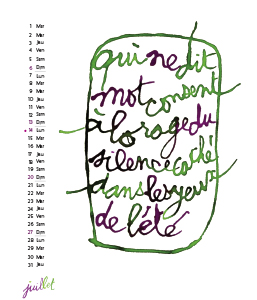 1 Mar
2 Mer
3 Jeu
4 Ven
5 Sam
6 Dim
7 Lun
8 Mar
9 Mer
10 Jeu
11 Ven
12 Sam
13 Dim
14 Lun
15 Mar
16 Mer
17 Jeu
18 Ven
19 Sam
20 Dim
21 Lun
22 Mar
23 Mer
24 Jeu
25 Ven
26 Sam
27 Dim
28 Lun
29 Mar
30 Mer
31 Jeu
juillet
qui ne dit
mot consent
à l'orage du
silence caché
dans les yeux
de l'été